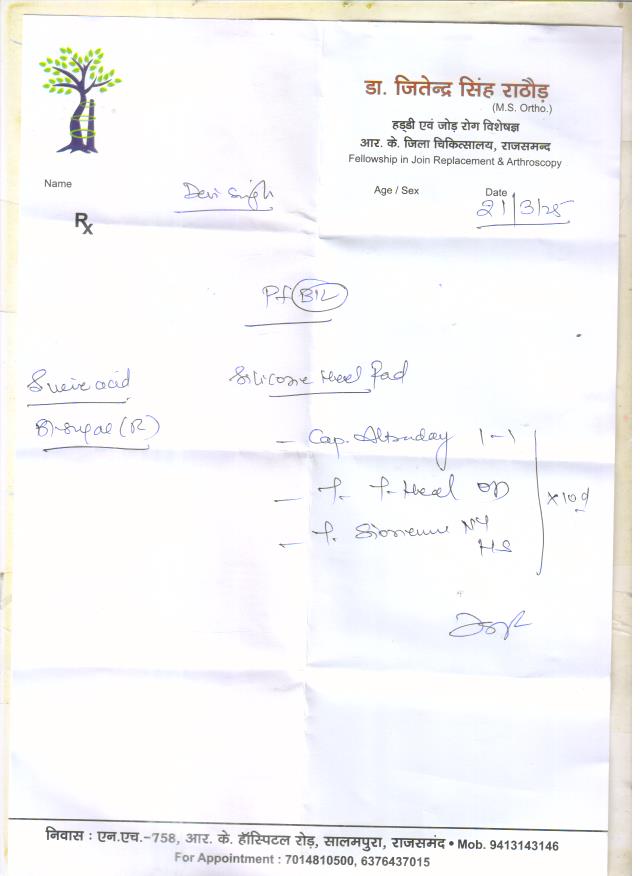 डा. जितेन्द्र सिंह राठौड़
(M.S. Ortho.)
हड्डी एवं जोड़ रोग विशेषज्ञ
आर. के. जिला चिकित्सालय, राजसमन्द
Fellowship in Join Replacement & Arthroscopy
Name Devi Singh Age / Sex Date 21/3/25
Rx
Pf B/L
Silicone Heel Pad
acid
(R)
- Cap. 1-1
- T. OD
x10d
- T. HS
निवास : एन.एच.-758, आर. के. हॉस्पिटल रोड़, सालमपुरा, राजसमंद • Mob. 9413143146
For Appointment : 7014810500, 6376437015